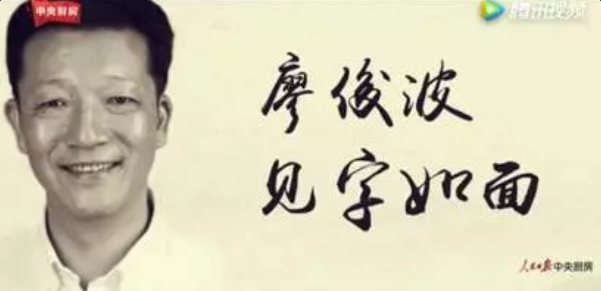 中央厨房
腾讯视频
廖俊波
见字如面
人民日报中央厨房